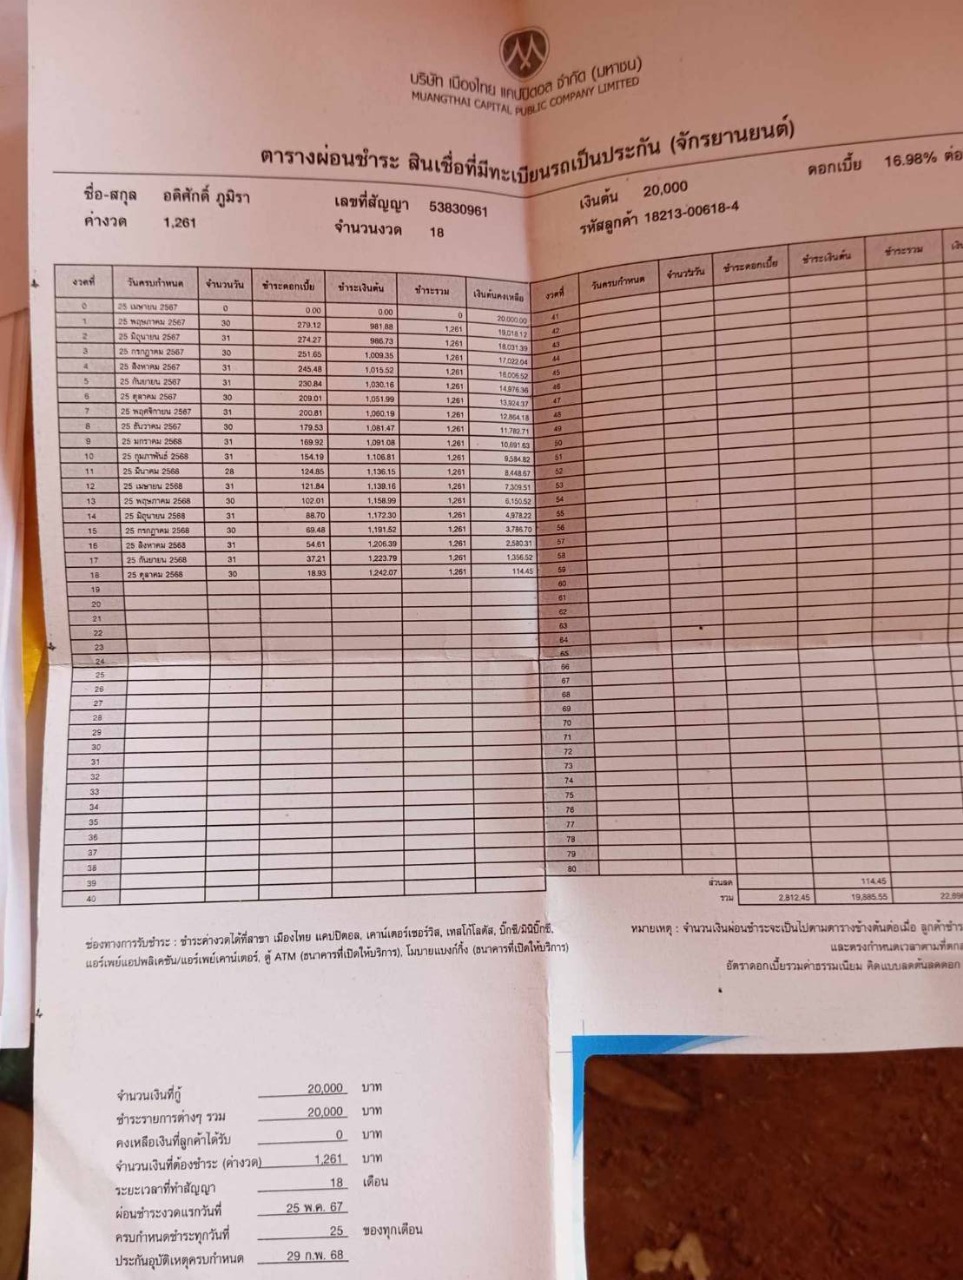 บริษัท เมืองไทย แคปปิตอล จำกัด (มหาชน)
MUANGTHAI CAPITAL PUBLIC COMPANY LIMITED
ตารางผ่อนชำระ สินเชื่อที่มีทะเบียนรถเป็นประกัน (จักรยานยนต์)
ชื่อ-สกุล อดิศักดิ์ ภูมิรา เลขที่สัญญา 53830961 เงินต้น 20,000 ดอกเบี้ย 16.98% ต่อ
ค่างวด 1,261 จำนวนงวด 18 รหัสลูกค้า 18213-00618-4
งวดที่ วันครบกำหนด จำนวนวัน ชำระดอกเบี้ย ชำระเงินต้น ชำระรวม เงินต้นคงเหลือ งวดที่ วันครบกำหนด จำนวนวัน ชำระดอกเบี้ย ชำระเงินต้น ชำระรวม
0 25 เมษายน 2567 0 0.00 0.00 0 20,000.00 41
1 25 พฤษภาคม 2567 30 279.12 981.88 1,261 19,018.12 42
2 25 มิถุนายน 2567 31 274.27 986.73 1,261 18,031.39 43
3 25 กรกฎาคม 2567 30 251.65 1,009.35 1,261 17,022.04 44
4 25 สิงหาคม 2567 31 245.48 1,015.52 1,261 16,006.52 45
5 25 กันยายน 2567 31 230.84 1,030.16 1,261 14,976.36 46
6 25 ตุลาคม 2567 30 209.01 1,051.99 1,261 13,924.37 47
7 25 พฤศจิกายน 2567 31 200.81 1,060.19 1,261 12,864.18 48
8 25 ธันวาคม 2567 30 179.53 1,081.47 1,261 11,782.71 49
9 25 มกราคม 2568 31 169.92 1,091.08 1,261 10,691.63 50
10 25 กุมภาพันธ์ 2568 31 154.19 1,106.81 1,261 9,584.82 51
11 25 มีนาคม 2568 28 124.85 1,136.15 1,261 8,448.67 52
12 25 เมษายน 2568 31 121.84 1,139.16 1,261 7,309.51 53
13 25 พฤษภาคม 2568 30 102.01 1,158.99 1,261 6,150.52 54
14 25 มิถุนายน 2568 31 88.70 1,172.30 1,261 4,978.22 55
15 25 กรกฎาคม 2568 30 69.48 1,191.52 1,261 3,786.70 56
16 25 สิงหาคม 2568 31 54.61 1,206.39 1,261 2,580.31 57
17 25 กันยายน 2568 31 37.21 1,223.79 1,261 1,356.52 58
18 25 ตุลาคม 2568 30 18.93 1,242.07 1,261 114.45 59
19 60
20 61
21 62
22 63
23 64
24 65
25 66
26 67
27 68
28 69
29 70
30 71
31 72
32 73
33 74
34 75
35 76
36 77
37 78
38 79
39 80
40
ส่วนลด 114.45
รวม 2,812.45 19,885.55
ช่องทางการรับชำระ : ชำระค่างวดได้ที่สาขา เมืองไทย แคปปิตอล, เคาน์เตอร์เซอร์วิส, เทสโก้โลตัส, บิ๊กซี/มินิบิ๊กซี,
แอร์เพย์แอปพลิเคชัน/แอร์เพย์เคาน์เตอร์, ตู้ ATM (ธนาคารที่เปิดให้บริการ), โมบายแบงก์กิ้ง (ธนาคารที่เปิดให้บริการ)
หมายเหตุ : จำนวนเงินผ่อนชำระจะเป็นไปตามตารางข้างต้นต่อเมื่อ ลูกค้าชำระ
และตรงกำหนดเวลาตามที่ตกลง
อัตราดอกเบี้ยรวมค่าธรรมเนียม คิดแบบลดต้นลดดอก
จำนวนเงินที่กู้ 20,000 บาท
ชำระรายการต่างๆ รวม 20,000 บาท
คงเหลือเงินที่ลูกค้าได้รับ 0 บาท
จำนวนเงินที่ต้องชำระ (ค่างวด) 1,261 บาท
ระยะเวลาที่ทำสัญญา 18 เดือน
ผ่อนชำระงวดแรกวันที่ 25 พ.ค. 67
ครบกำหนดชำระทุกวันที่ 25 ของทุกเดือน
ประกันอุบัติเหตุครบกำหนด 29 ก.พ. 68